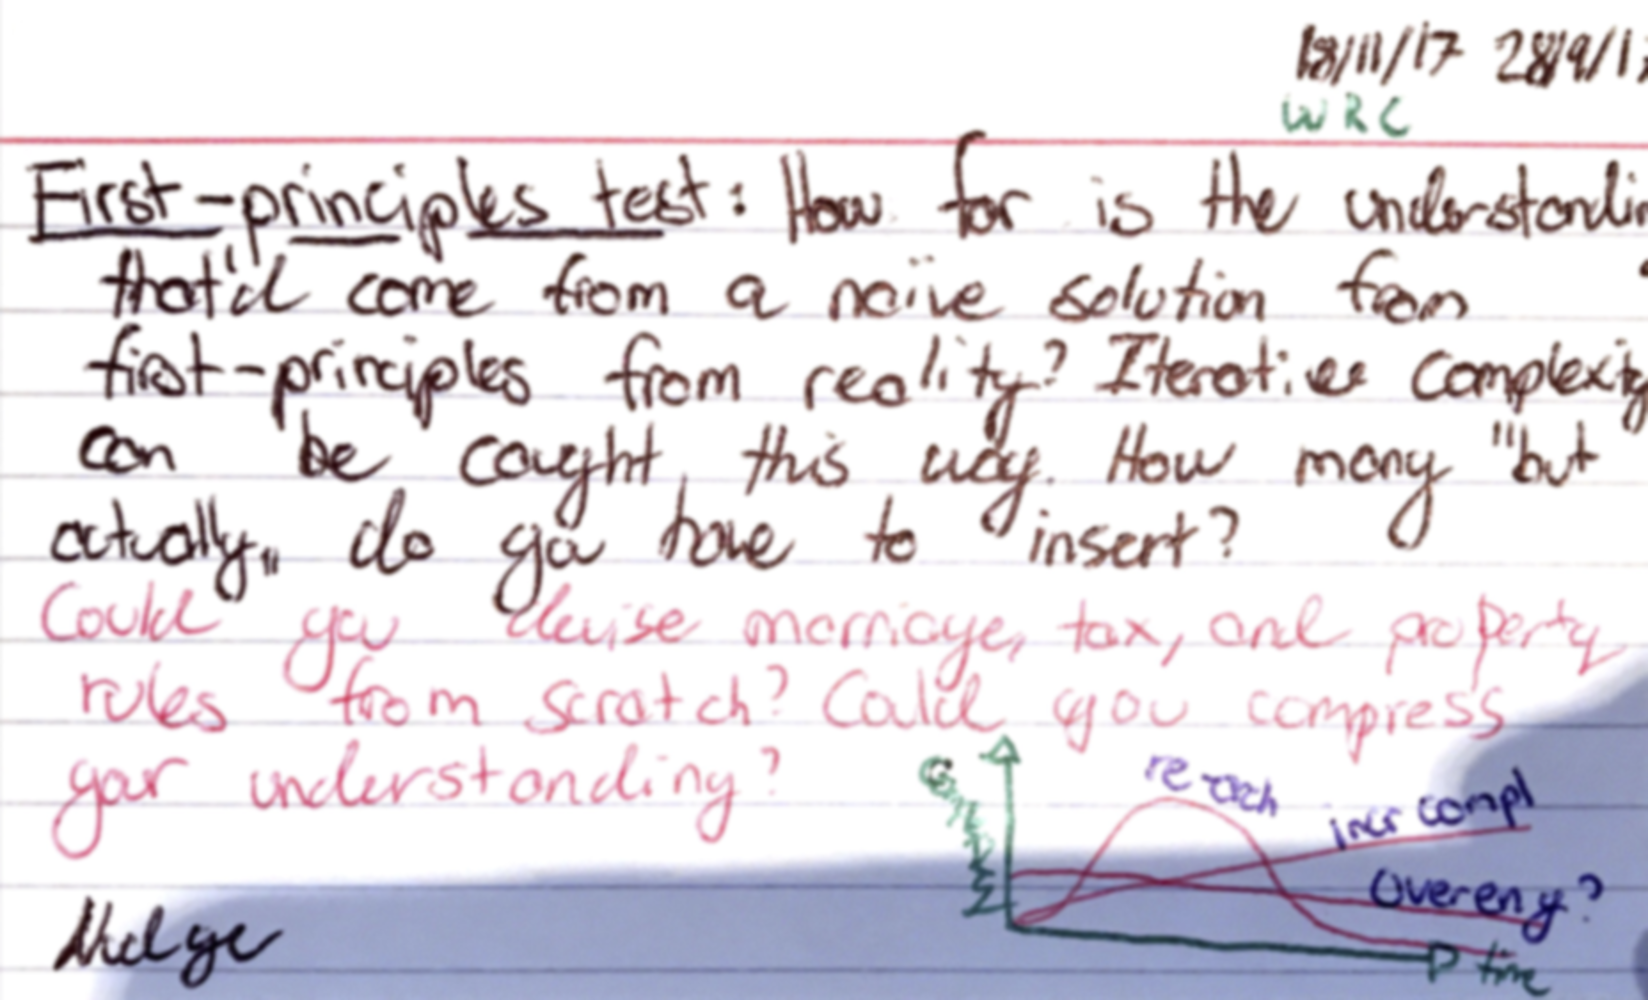 18/11/17 28/9/17
WRC
First-principles test: How far is the understandin
that'd come from a naïve solution from
first-principles from reality? Iterative complexity
can be caught this way. How many "but
actually" do you have to insert?
Could you devise marriage, tax, and property
rules from scratch? Could you compress
your understanding?
re-arch
incr compl
Overeng?
time